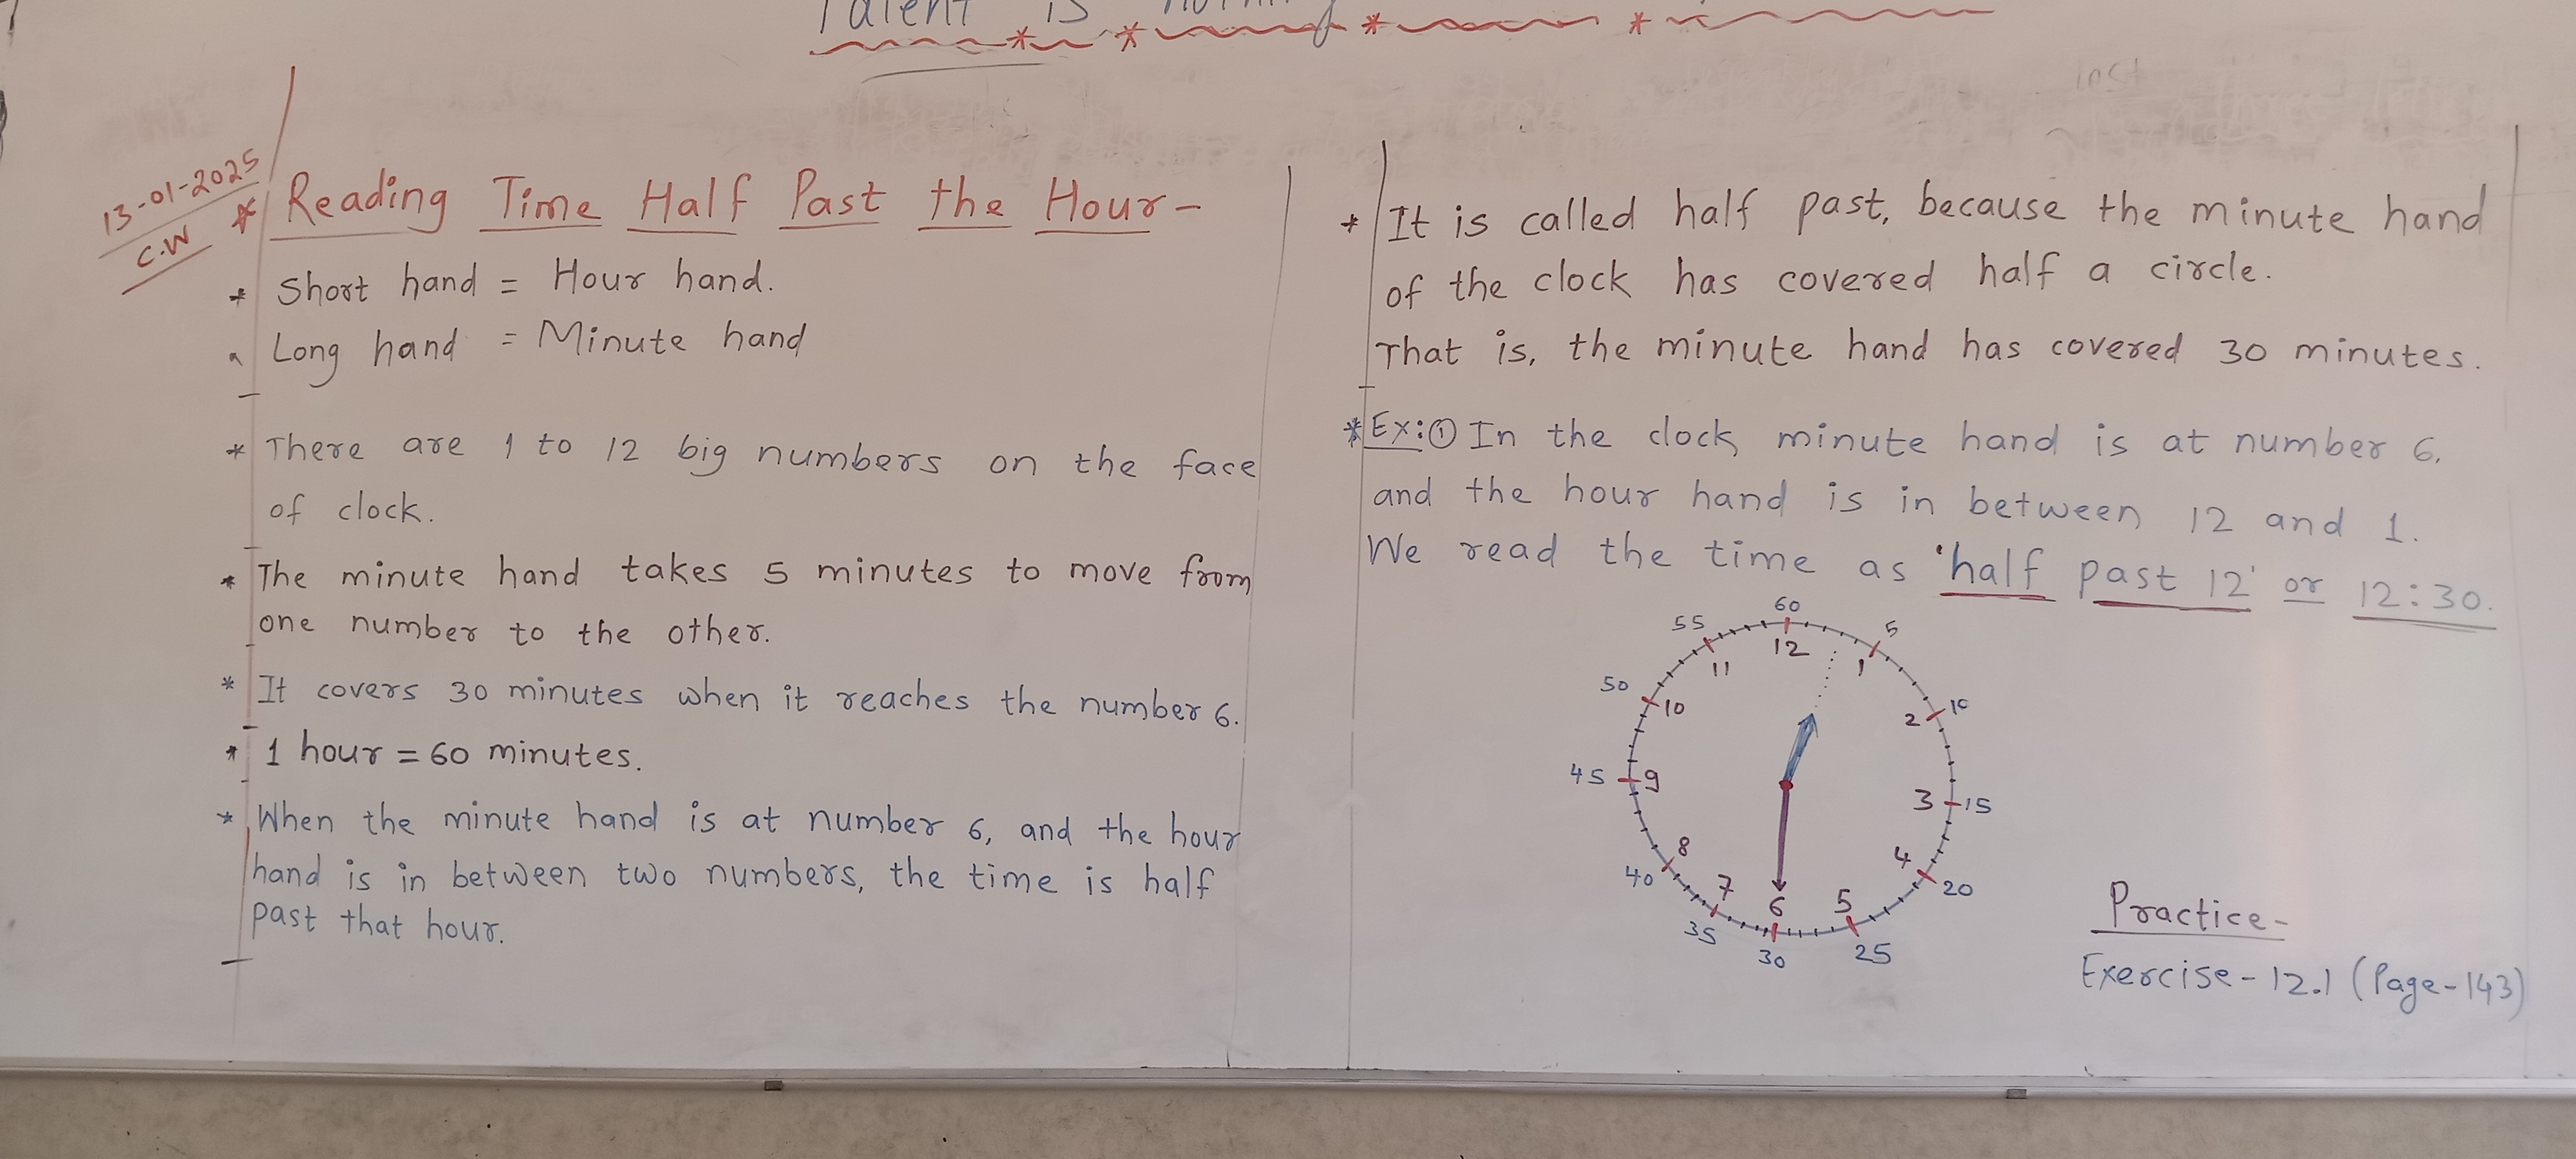 Talent is
13-01-2025
C.W
* Reading Time Half Past the Hour-
* Short hand = Hour hand.
Long hand = Minute hand
* There are 1 to 12 big numbers on the face
of clock.
* The minute hand takes 5 minutes to move from
one number to the other.
* It covers 30 minutes when it reaches the number 6.
* 1 hour = 60 minutes.
* When the minute hand is at number 6, and the hour
hand is in between two numbers, the time is half
past that hour.
* It is called half past, because the minute hand
of the clock has covered half a circle.
That is, the minute hand has covered 30 minutes.
* Ex:① In the clock, minute hand is at number 6,
and the hour hand is in between 12 and 1.
We read the time as 'half past 12' or 12:30.
60
55 5
12
11 1
50 10
10 2
45 9 3 15
8 4
40 20
7 5
6
35 25
30
Practice-
Exercise-12.1 (Page-143)